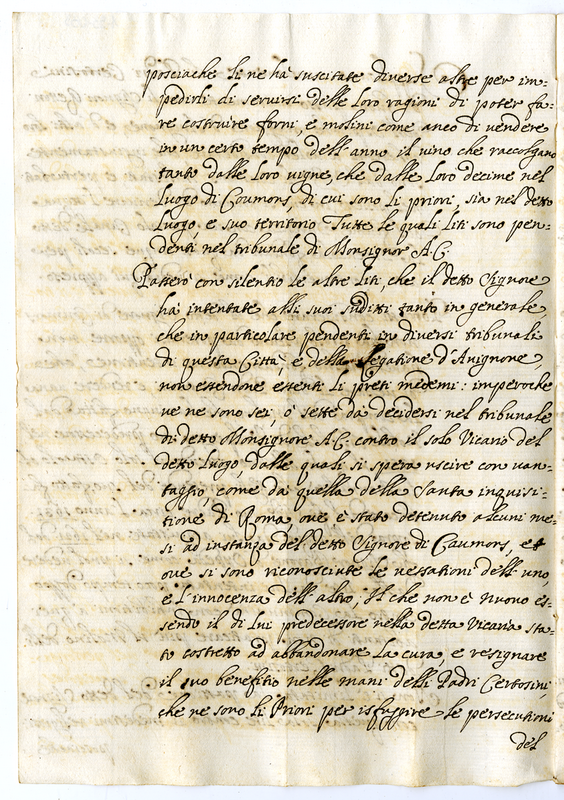 posciache li ne ha suscitate diverse altre per im-
pedirli di servirsi delle loro ragioni di poter fa-
re costruire forni, e molini come anco di vendere
in un certo tempo dell'anno il vino che raccolgano
tanto dalle loro vigne, che dalle loro decime nel
luogo di Caumons, di cui sono li priori, sia nel detto
luogo, e suo territorio Tutte le quali liti sono pen-
denti nel tribunale di Monsignor A.C.
Passerò con silentio le altre liti, che il detto Signore
ha intentate alli suoi sudditi tanto in generale,
che in particolare pendenti in diversi tribunali
di questa Città, e della Legatione d'Avignone,
non essendone essenti li preti medemi: imperoche
ve ne sono sei, ò sette da decidersi nel tribunale
di detto Monsignore A.C. contro il solo Vicario del
detto luogo, dalle quali si spera uscire con van-
taggio, come da quella della Santa inquisi-
tione di Roma, ove è stato detenuto alcuni me-
si ad instanza del detto Signore di Caumons, et
ove si sono riconosciute le vessationi dell'uno,
e l'innocenza dell'altro; Il che non è nuovo es-
sendo il di lui predecessore nella detta Vicaria sta-
to costretto ad abbandonare la cura, e resignare
il suo benefitio nelle mani delli Padri Certosini
che ne sono li Priori per isfuggire le persecutioni
del